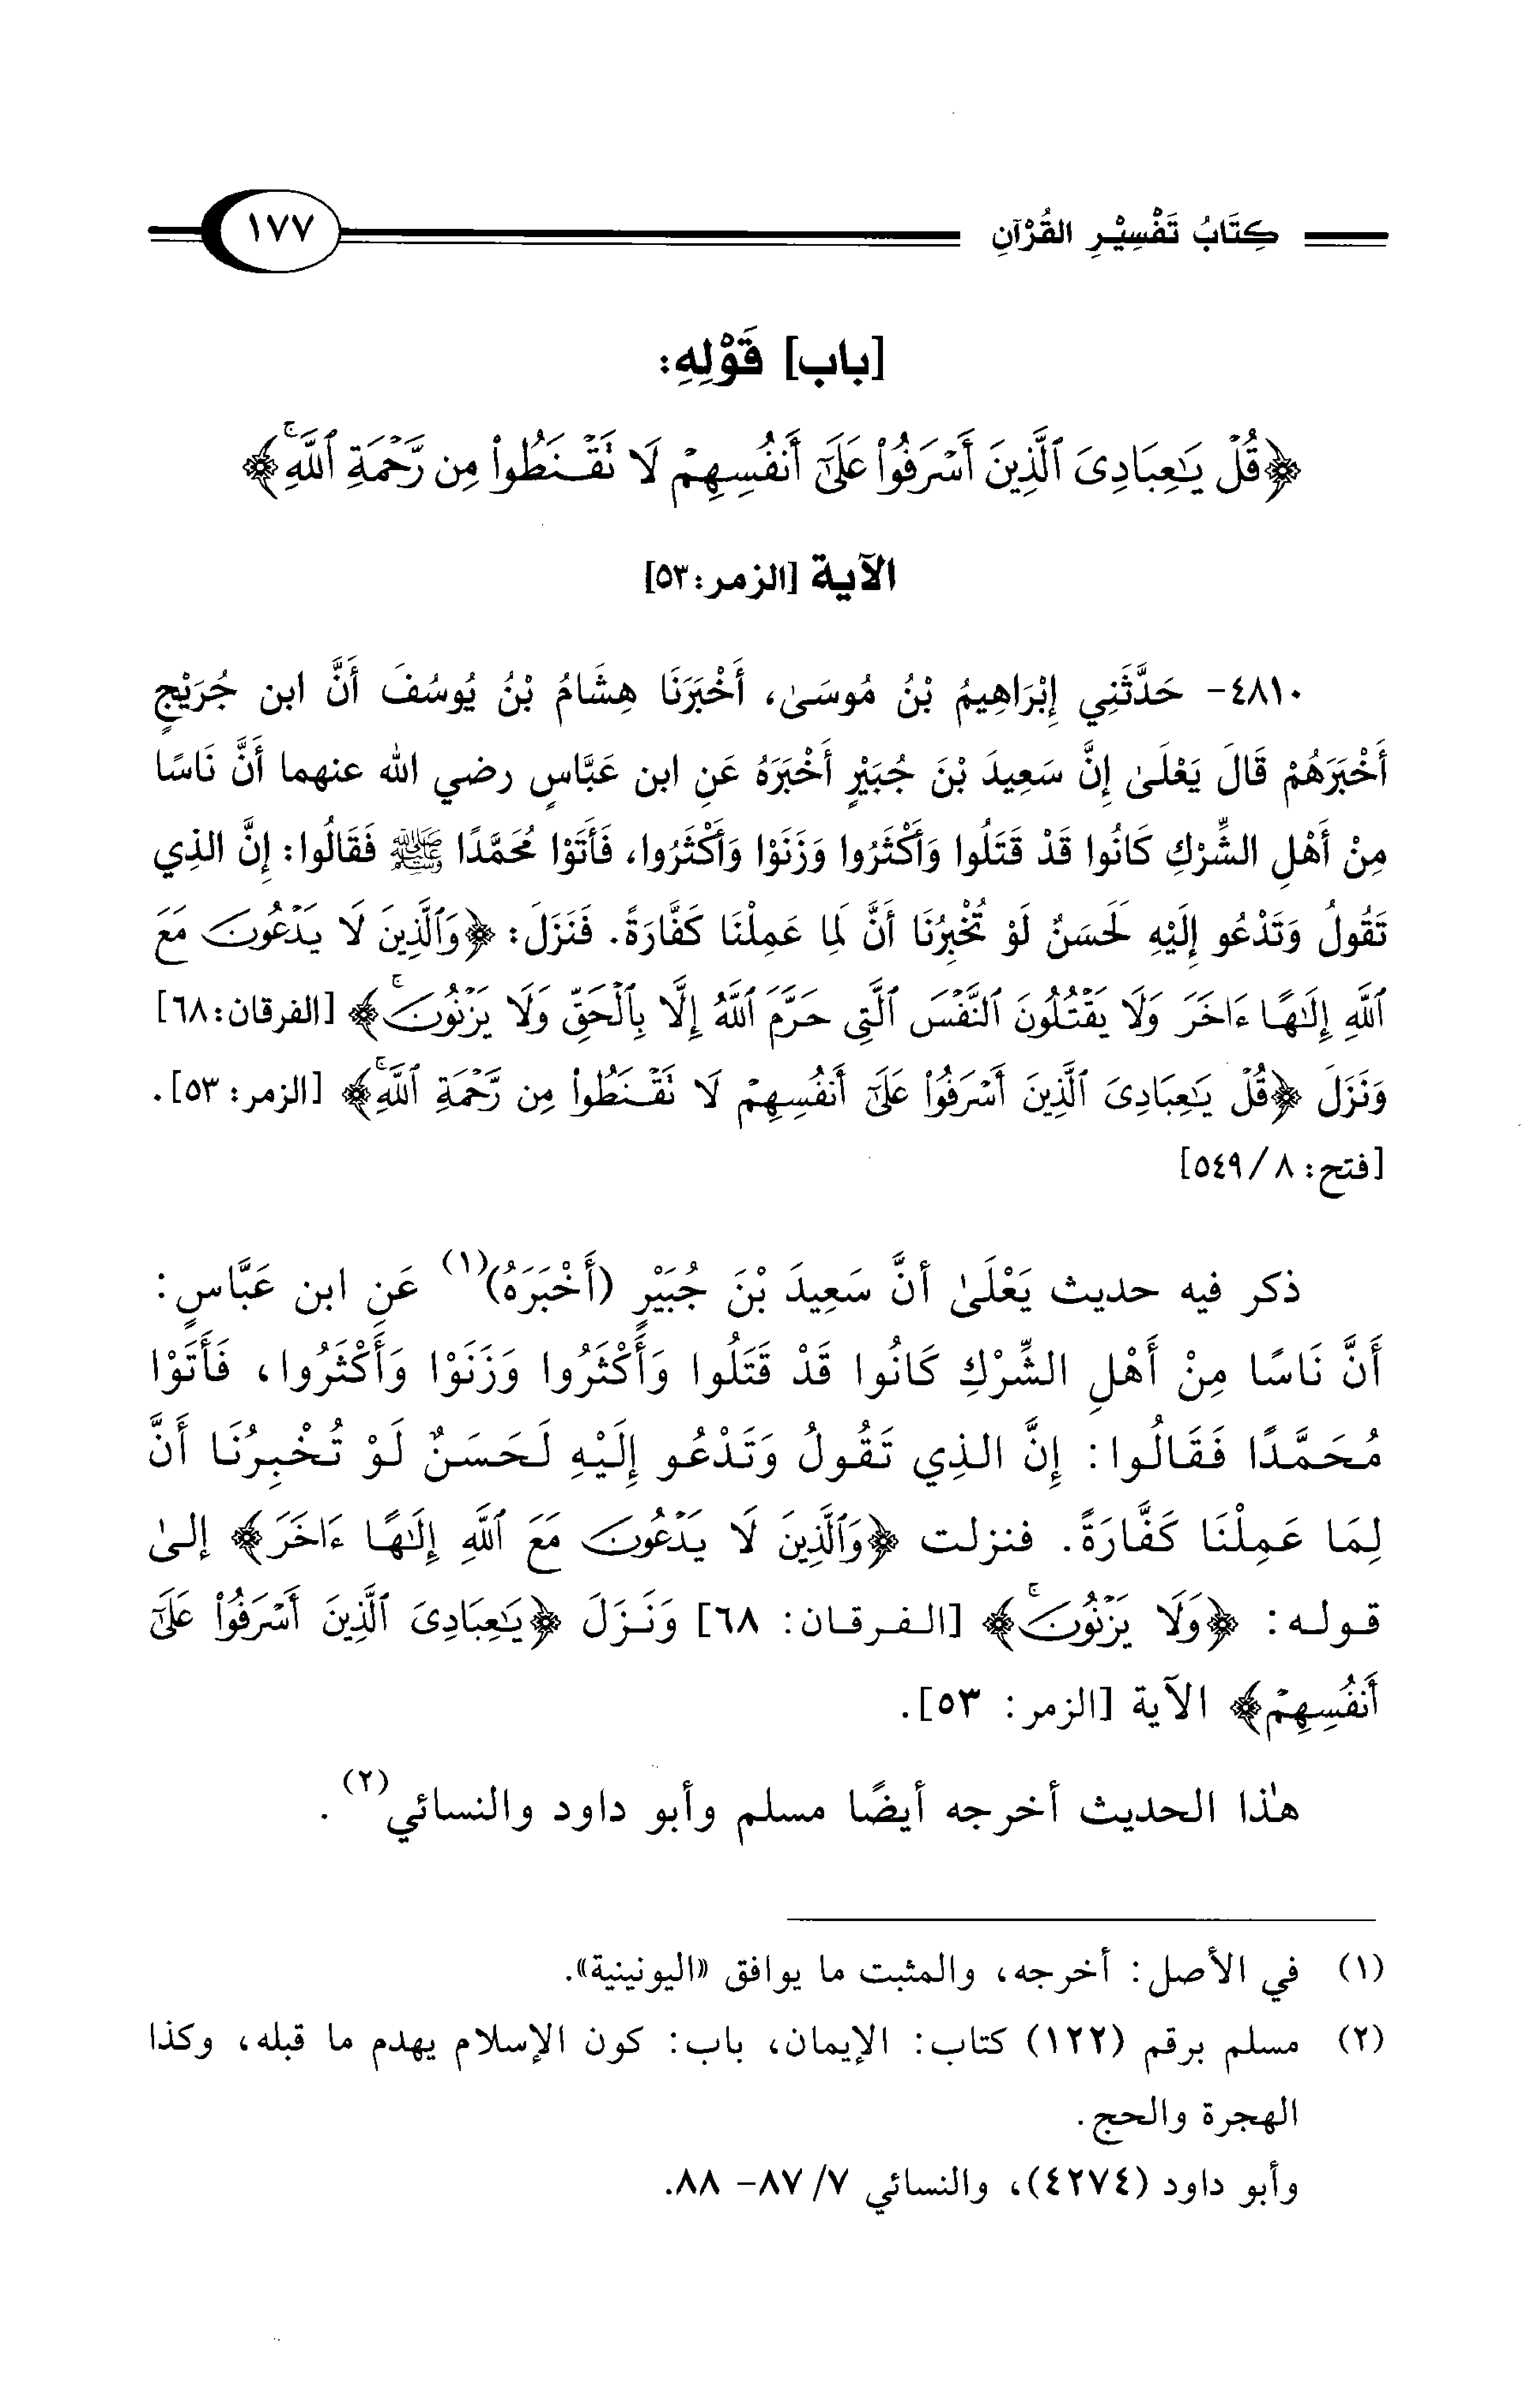 كِتَابُ تَفْسِيْرِ القُرْآنِ
١٧٧
[باب] قَوْلِهِ:
﴿قُلْ يَٰعِبَادِىَ ٱلَّذِينَ أَسْرَفُوا۟ عَلَىٰٓ أَنفُسِهِمْ لَا نَقْـنَطُوا۟ مِن رَّحْمَةِ ٱللَّهِۚ﴾
الآية [الزمر:٥٣]
٤٨١٠- حَدَّثَنِي إِبْرَاهِيمُ بْنُ مُوسَىٰ، أَخْبَرَنَا هِشَامُ بْنُ يُوسُفَ أَنَّ ابن جُرَيْجٍ
أَخْبَرَهُمْ قَالَ يَعْلَىٰ إِنَّ سَعِيدَ بْنَ جُبَيْرٍ أَخْبَرَهُ عَنِ ابن عَبَّاسٍ رضي الله عنهما أَنَّ نَاسًا
مِنْ أَهْلِ الشِّرْكِ كَانُوا قَدْ قَتَلُوا وَأَكْثَرُوا وَزَنَوْا وَأَكْثَرُوا، فَأَتَوْا مُحَمَّدًا ﷺ فَقَالُوا: إِنَّ الذِي
تَقُولُ وَتَدْعُو إِلَيْهِ لَحَسَنٌ لَوْ تُخْبِرُنَا أَنَّ لِمَا عَمِلْنَا كَفَّارَةً. فَنَزَلَ: ﴿وَٱلَّذِينَ لَا يَدْعُونَ مَعَ
ٱللَّهِ إِلَٰهًا ءَاخَرَ وَلَا يَقْتُلُونَ ٱلنَّفْسَ ٱلَّتِى حَرَّمَ ٱللَّهُ إِلَّا بِٱلْحَقِّ وَلَا يَزْنُونَۚ﴾ [الفرقان:٦٨]
وَنَزَلَ ﴿قُلْ يَٰعِبَادِىَ ٱلَّذِينَ أَسْرَفُوا۟ عَلَىٰٓ أَنفُسِهِمْ لَا نَقْـنَطُوا۟ مِن رَّحْمَةِ ٱللَّهِۚ﴾ [الزمر: ٥٣].
[فتح: ٨/ ٥٤٩]
ذكر فيه حديث يَعْلَىٰ أنَّ سَعِيدَ بْنَ جُبَيْرٍ (أَخْبَرَهُ)(١) عَنِ ابن عَبَّاسٍ:
أَنَّ نَاسًا مِنْ أَهْلِ الشِّرْكِ كَانُوا قَدْ قَتَلُوا وَأَكْثَرُوا وَزَنَوْا وَأَكْثَرُوا، فَأَتَوْا
مُحَمَّدًا فَقَالُوا: إِنَّ الذِي تَقُولُ وَتَدْعُو إِلَيْهِ لَحَسَنٌ لَوْ تُخْبِرُنَا أَنَّ
لِمَا عَمِلْنَا كَفَّارَةً. فنزلت ﴿وَٱلَّذِينَ لَا يَدْعُونَ مَعَ ٱللَّهِ إِلَٰهًا ءَاخَرَ﴾ إلىٰ
قوله: ﴿وَلَا يَزْنُونَۚ﴾ [الفرقان: ٦٨] وَنَزَلَ ﴿يَٰعِبَادِىَ ٱلَّذِينَ أَسْرَفُوا۟ عَلَىٰٓ
أَنفُسِهِمْ﴾ الآية [الزمر: ٥٣].
هـٰذا الحديث أخرجه أيضًا مسلم وأبو داود والنسائي(٢).
(١) في الأصل: أخرجه، والمثبت ما يوافق «اليونينية».
(٢) مسلم برقم (١٢٢) كتاب: الإيمان، باب: كون الإسلام يهدم ما قبله، وكذا
الهجرة والحج.
وأبو داود (٤٢٧٤)، والنسائي ٧/ ٨٧- ٨٨.